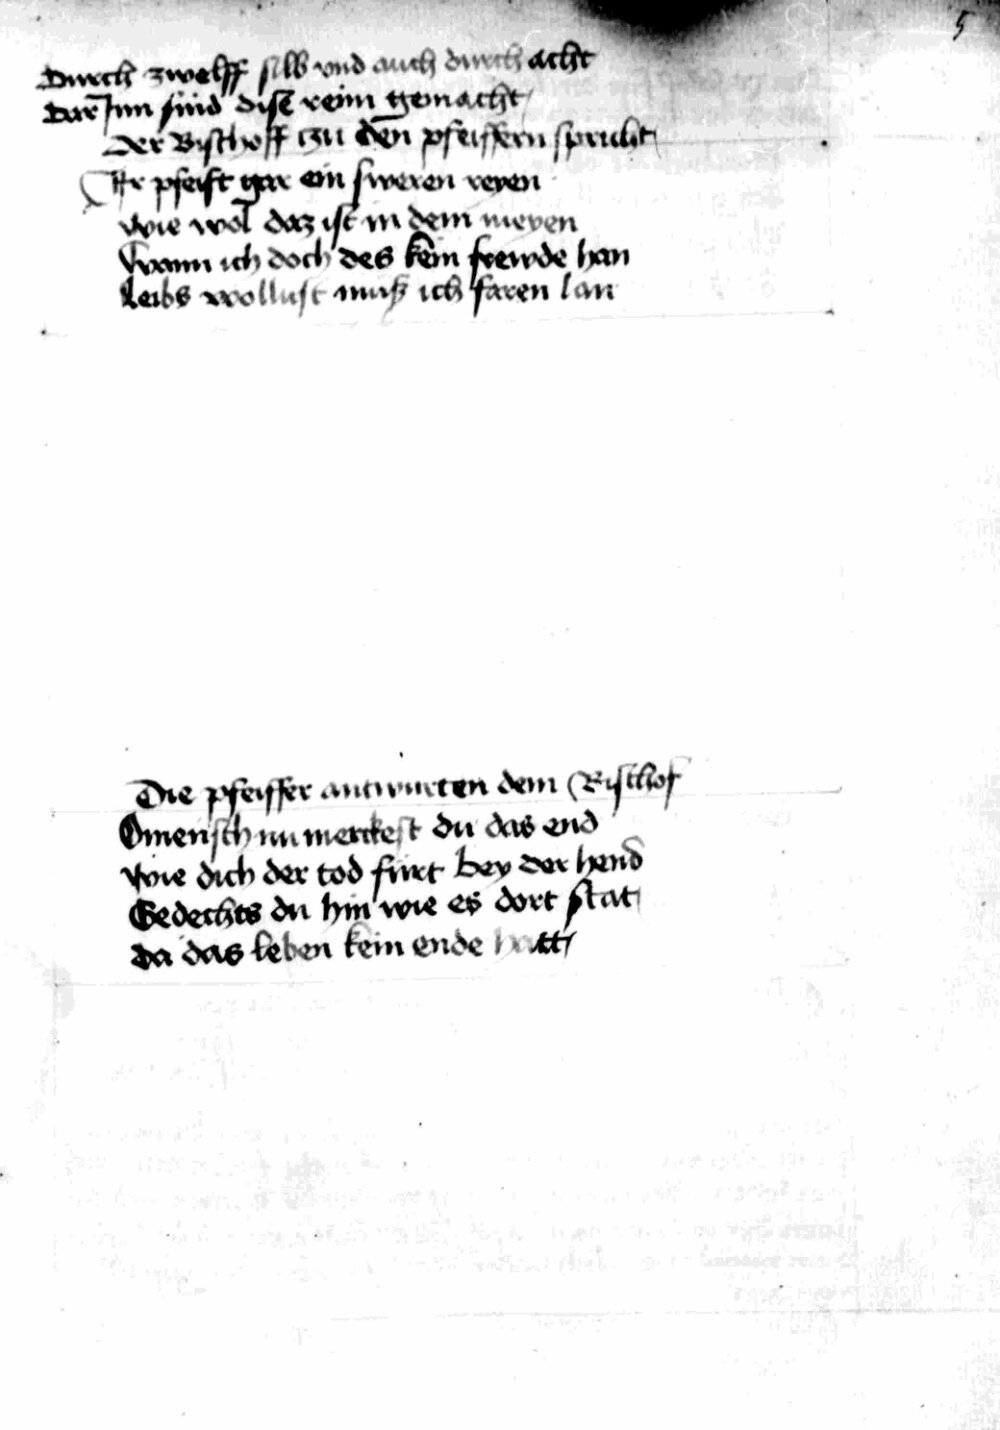 5
Durch zwelff silb vnd auch durch acht
Dar Inn sind dise reim gemacht
Der Bischoff tzu den pfeiffern spricht
Ir pfeift gar ein sweren reyen
wie wol daz ist in dem meyen
wann ich doch des kein frewde han
leibs wollust muß ich faren lan
Die pfeiffer antwurten dem Bischof
O mensch nu merckest du das end
wie dich der tod fürt bey der hend
Gedechts du hin wie es dort stat
da das leben kein ende hatt